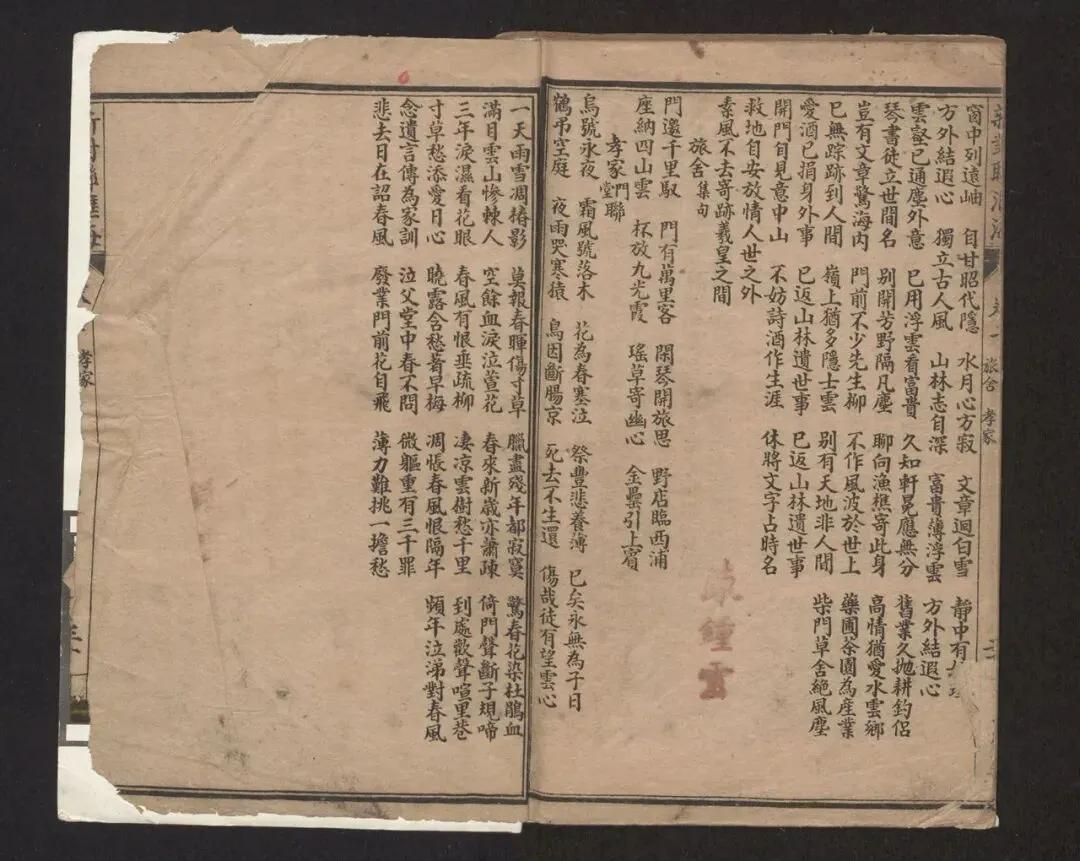 旅舍 孝家
窗中列遠岫 自甘昭代隱 水月心方寂 文章迴白雪 靜中有
方外結遐心 獨立古人風 山林志自深 富貴薄浮雲 方外結遐心
雲壑已通塵外意 已用浮雲看富貴 久知軒冕應無分 舊業久抛耕釣侶
琴書徒立世間名 别開芳野隔凡塵 聊向漁樵寄此身 高情猶愛水雲鄉
豈有文章驚海內 門前不少先生柳 不作風波於世上 藥圃茶園為産業
已無踪跡到人間 嶺上猶多隱士雲 别有天地非人間 柴門草舍絕風塵
愛酒已捐身外事 已返山林遺世事 已返山林遺世事
開門自見意中山 不妨詩酒作生涯 休將文字占時名
救地自安放情人世之外
素風不去寄跡羲皇之間
旅舍集句
門邀千里馭 門有萬里客 閑琴開旅思 野店臨西浦
座納四山雲 杯放九光霞 瑤草寄幽心 金罍引上賓
孝家門堂聯
烏號永夜 霜風號落木 花為春塞泣 祭豐悲養薄 已矣永無為子日
鶴吊空庭 夜雨哭寒猿 鳥因斷腸京 死去不生還 傷哉徒有望雲心
一天雨雪凋椿影 莫報春暉傷寸草 臘盡殘年都寂寞 驚春花染杜鵑血
滿目雲山慘棘人 空餘血淚泣萱花 春來新歲亦蕭疎 倚門聲斷子規啼
三年淚濕看花眼 春風有恨垂疏柳 凄凉雲樹愁千里 到處歡聲喧里巷
寸草愁添愛日心 曉露含愁著早梅 凋悵春風恨隔年 頻年泣涕對春風
念遺言傳為家訓 泣父堂中春不問 微軀重有三千罪
悲去日在詔春風 廢業門前花自飛 薄力難挑一擔愁
孝家